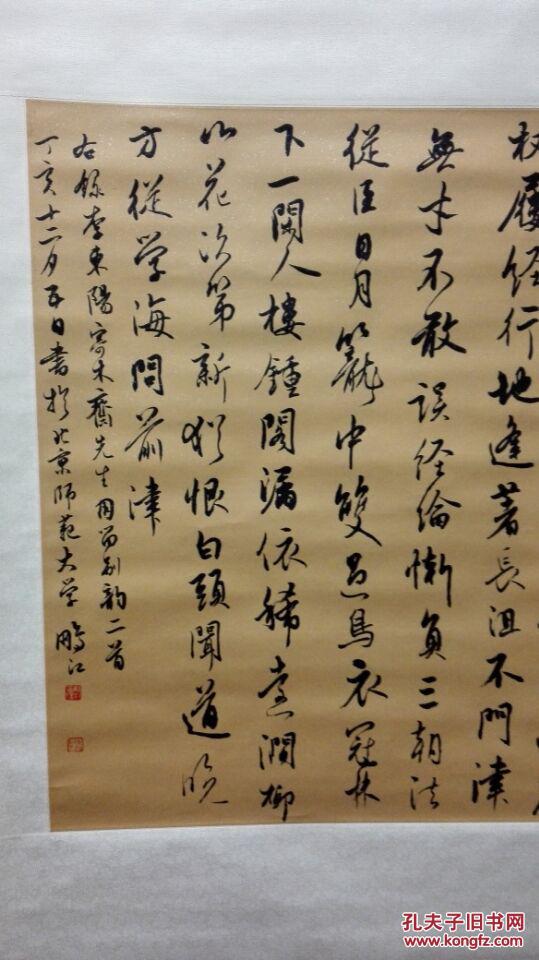 杖履经行地逢著長沮不問津
無才不敢誤经綸慚負三朝法
從臣日月籠中雙過鳥衣冠林
下一閑人樓鍾閣漏依稀遠澗柳
山花次第新猶恨白頭聞道晚
方從学海問前津
右録李東陽寄木齋先生用留别韵二首
丁亥十二月五日書於北京師範大学 鵬江
孔夫子旧书网
www.kongfz.com